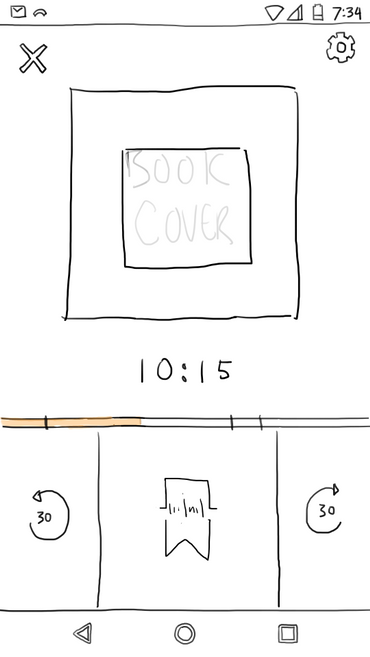 7:34
BOOK
COVER
10:15
30
30